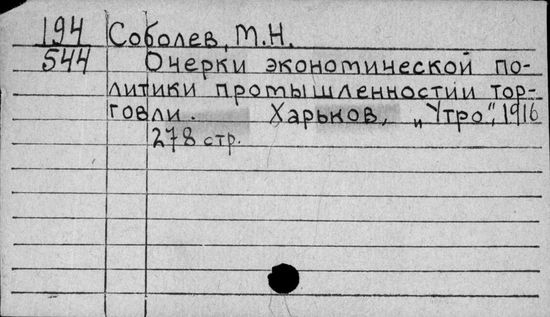 194 Соболев, М.Н.
544 Очерки экономической по-
литики промышленности и тор-
говли. Харьков, „Утро", 1916
278 стр.